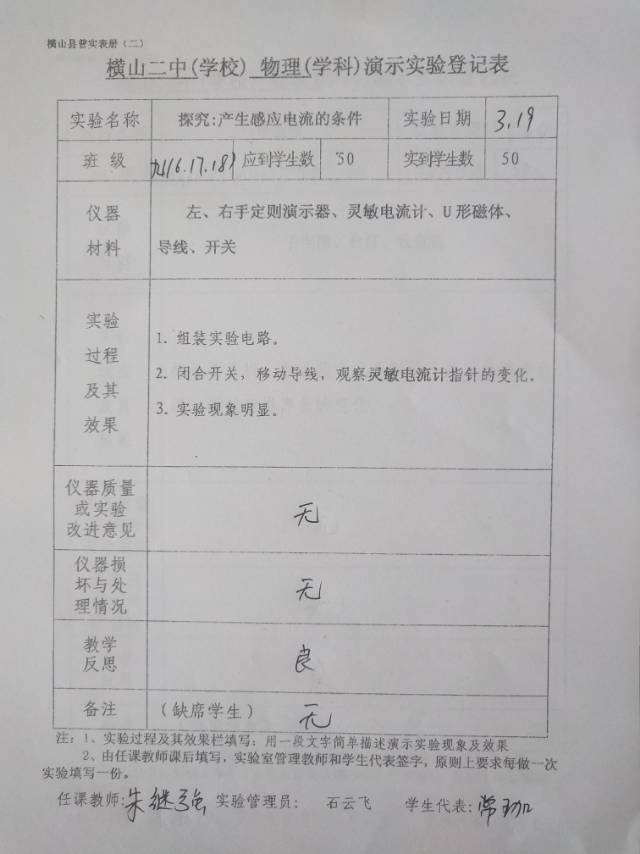 横山县普实表册（二）
横山二中(学校) 物理(学科)演示实验登记表
实验名称 探究:产生感应电流的条件 实验日期 3.19
班 级 16.17.18 应到学生数 50 实到学生数 50
仪器
材料
左、右手定则演示器、灵敏电流计、U形磁体、
导线、开关
实验
过程
及其
效果
1. 组装实验电路。
2. 闭合开关，移动导线，观察灵敏电流计指针的变化。
3. 实验现象明显。
仪器质量
或实验
改进意见
无
仪器损
坏与处
理情况
无
教学
反思
良
备注 （缺席学生） 无
注：1、实验过程及其效果栏填写：用一段文字简单描述演示实验现象及效果
2、由任课教师课后填写，实验室管理教师和学生代表签字，原则上要求每做一次
实验填写一份。
任课教师:朱继强 实验管理员: 石云飞 学生代表:常